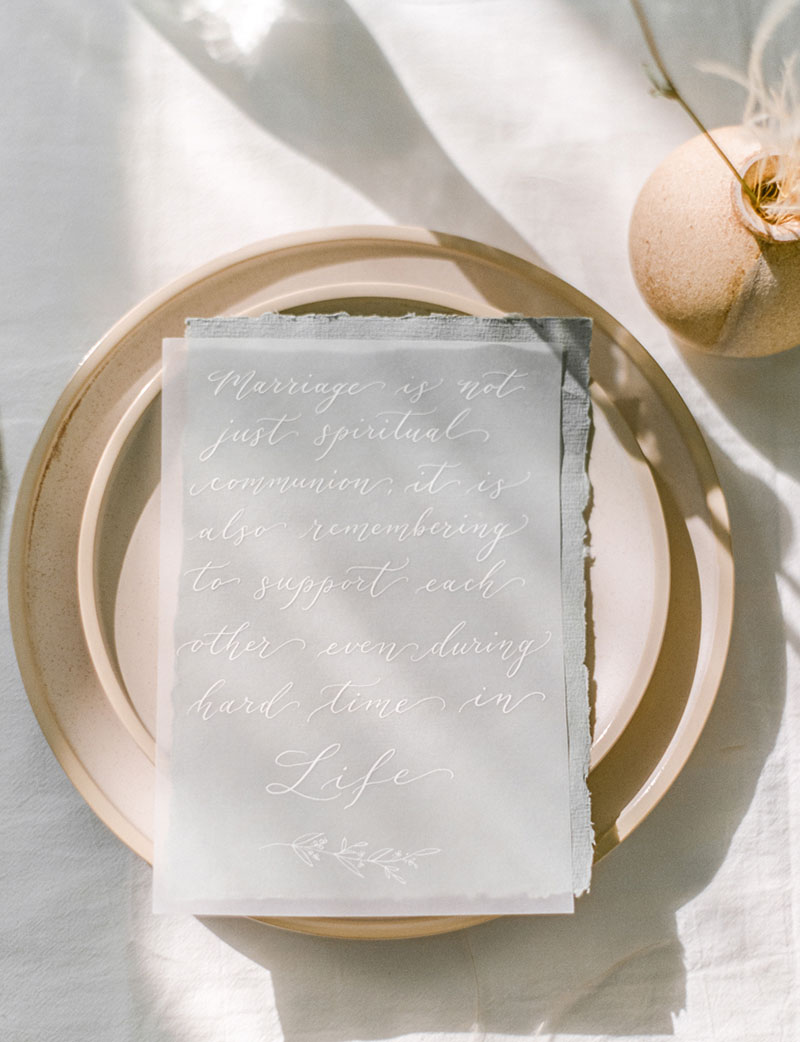 Marriage is not
just spiritual
communion, it is
also remembering
to support each
other even during
hard time in
Life